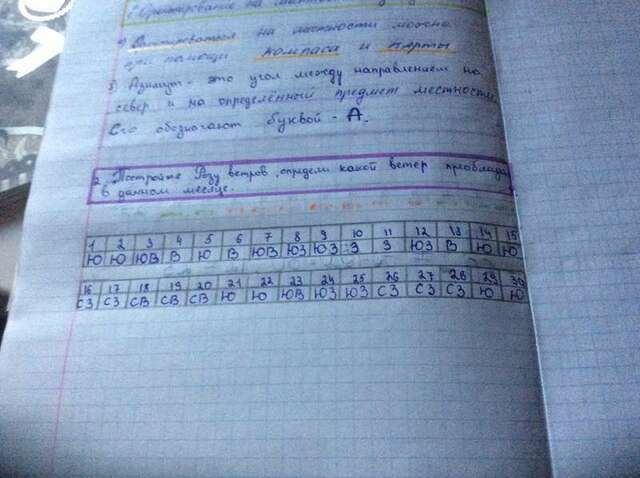 Ориентирование на местности
4) Ориентироваться на местности можно
при помощи компаса и карты
5) Азимут - это угол между направлением на
север и на определённый предмет местности.
Его обозначают буквой - А.
2. Постройте Розу ветров, определи какой ветер преоблада
в данном месяце.
1 2 3 4 5 6 7 8 9 10 11 12 13 14 15
Ю Ю ЮВ В Ю В ЮВ ЮЗ ЮЗ З З ЮЗ В Ю Ю
16 17 18 19 20 21 22 23 24 25 26 27 28 29 30
СЗ СЗ СВ СВ СВ Ю Ю ЮВ ЮЗ ЮЗ СЗ СЗ СЗ Ю Ю